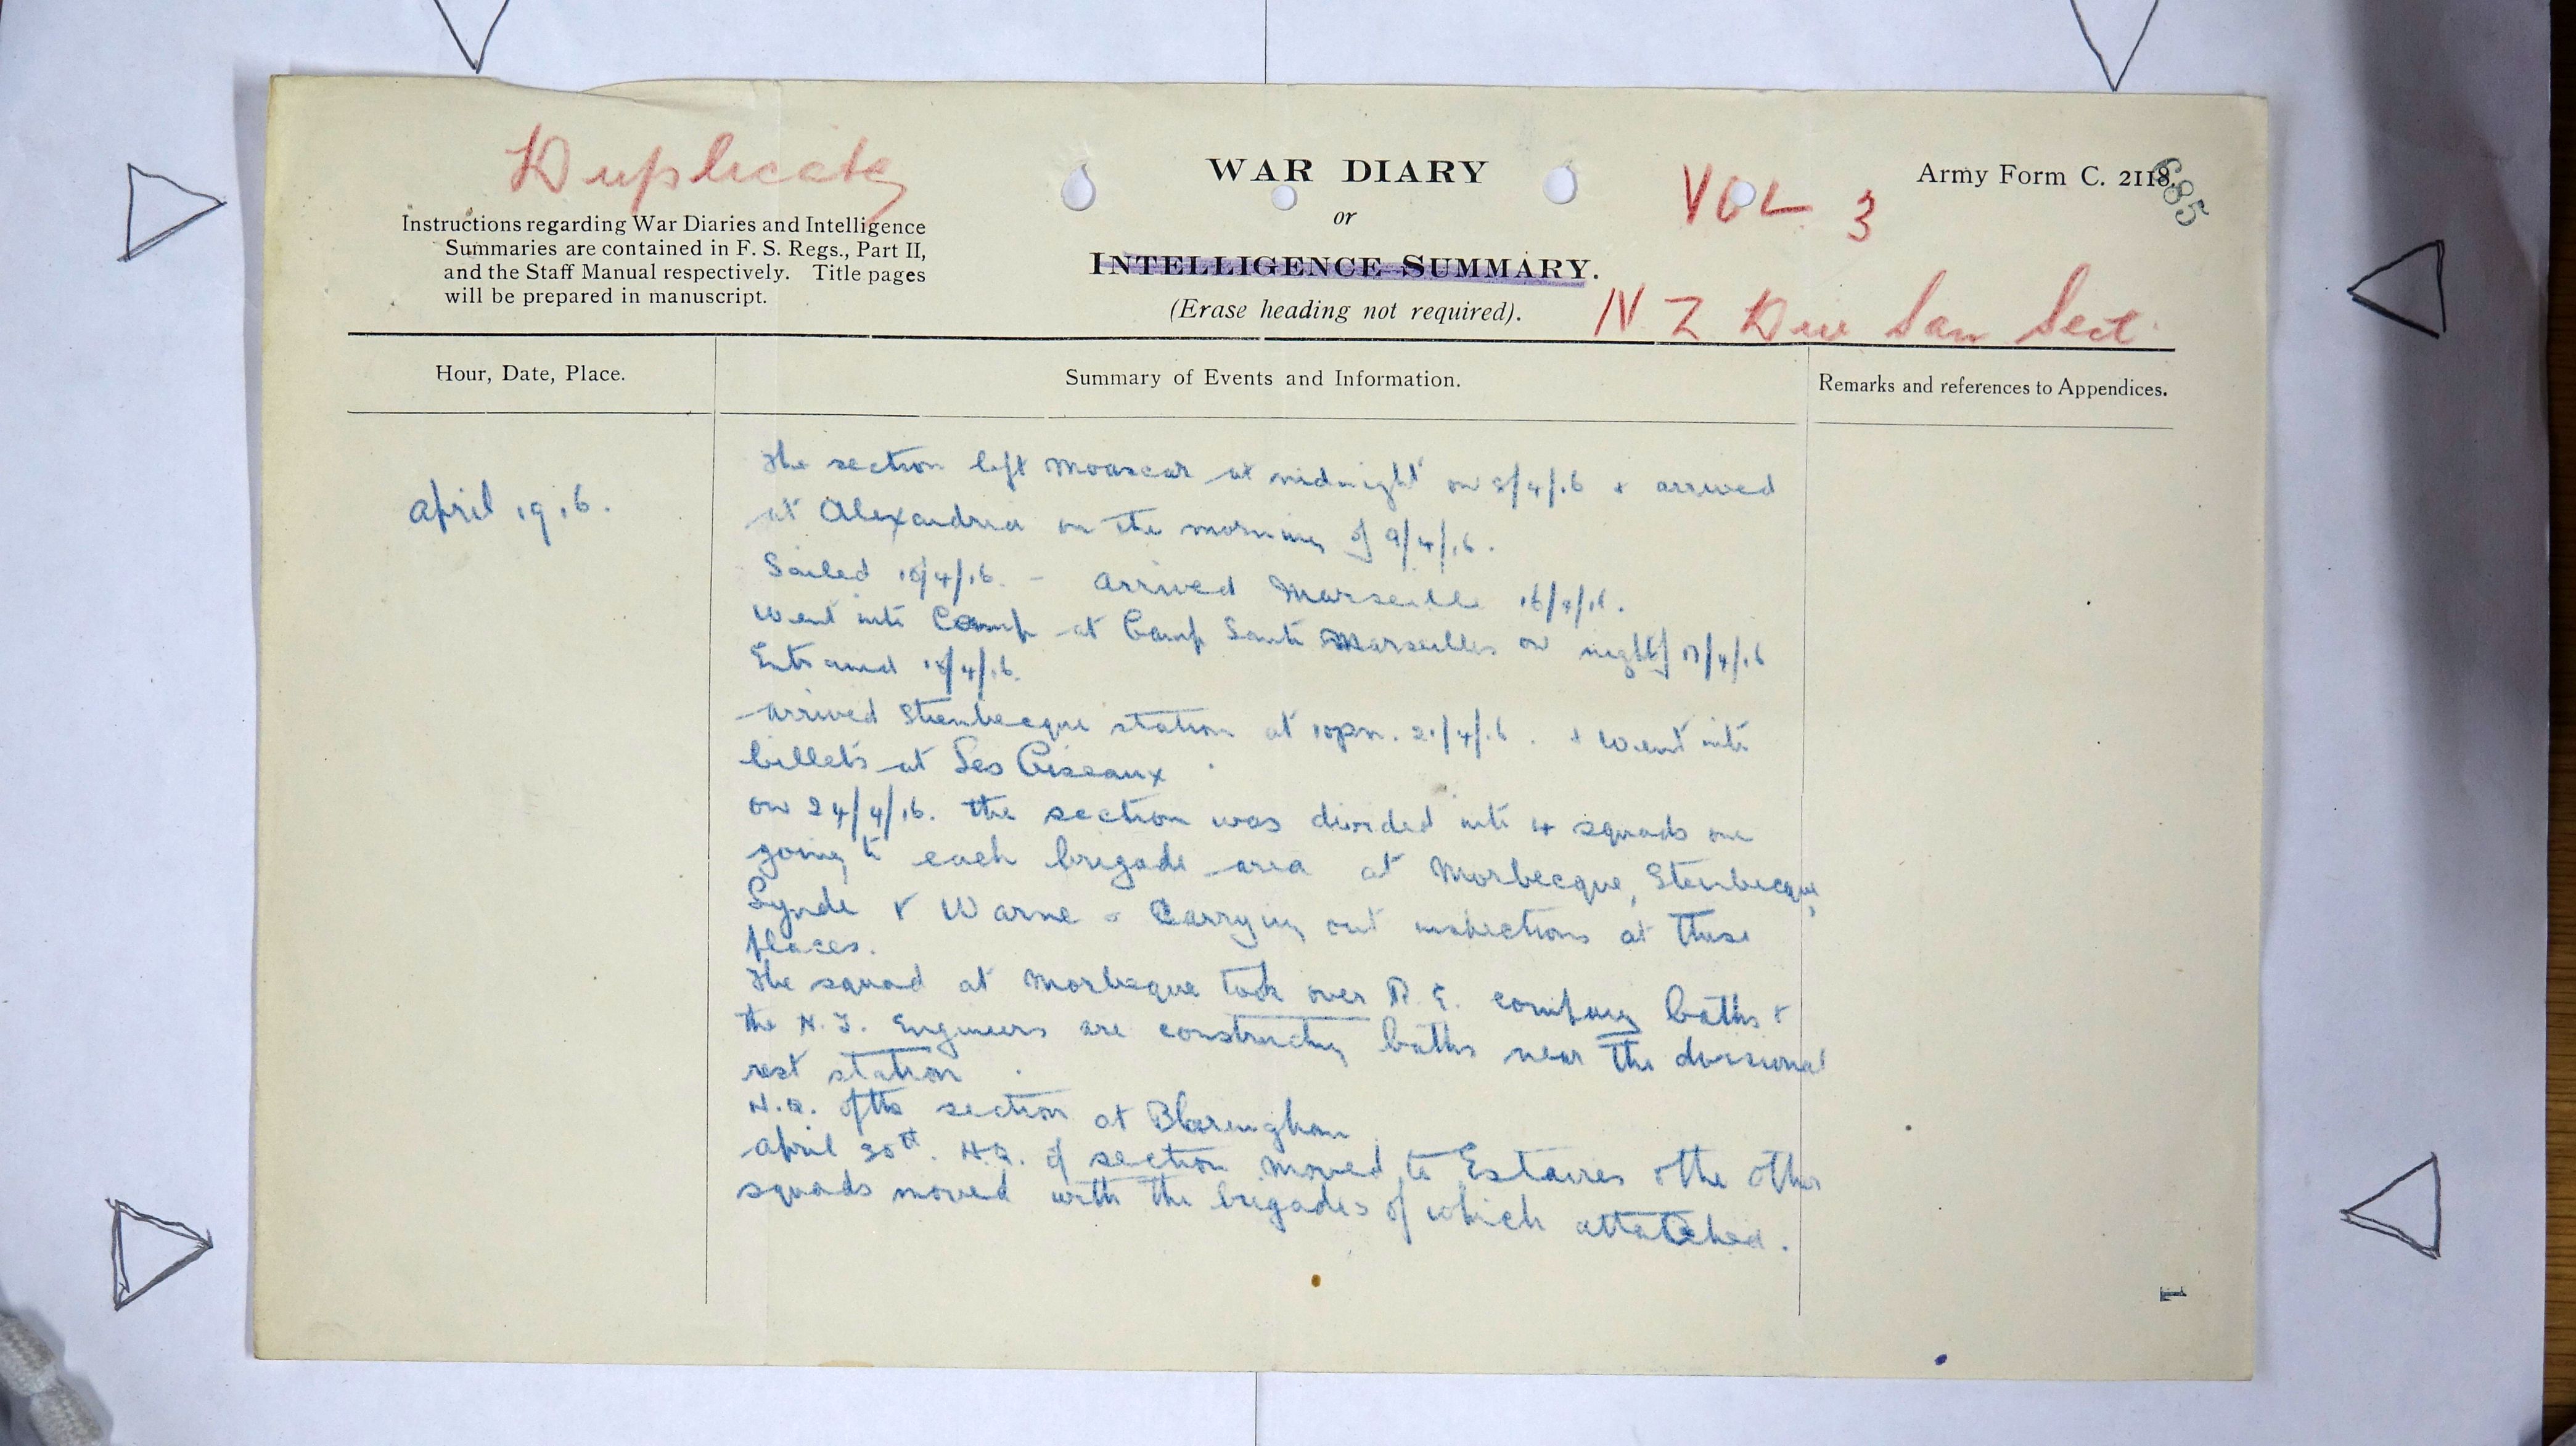 Duplicate
WAR DIARY
or
INTELLIGENCE SUMMARY.
(Erase heading not required).
VOL 3
Army Form C. 2118.
685
Instructions regarding War Diaries and Intelligence
Summaries are contained in F. S. Regs., Part II,
and the Staff Manual respectively. Title pages
will be prepared in manuscript.
N Z Div San Sect.
Hour, Date, Place.
Summary of Events and Information.
Remarks and references to Appendices.
April 1916.
The section left Moascar at midnight on 8/4/16 & arrived
at Alexandria on the morning of 9/4/16.
Sailed 10/4/16. - Arrived Marseille 16/4/16.
Went into Camp at Camp Santi Marseilles on night of 17/4/16
Entrained 18/4/16.
Arrived Steenbecque station at 10pm. 21/4/16. & went into
billets at Les Ciseaux.
on 24/4/16. the section was divided into 4 squads one
going to each brigade area at Morbecque, Steenbecque,
Lynde & Warne & Carrying out inspections at these
places.
The squad at Morbeque took over R.E. company baths &
the N.Z. Engineers are constructing baths near the divisional
rest station.
H.Q. of the section at Blaringhem
April 30th. H.Q. of section moved to Estaires & the other
squads moved with the brigades of which attatched.
1